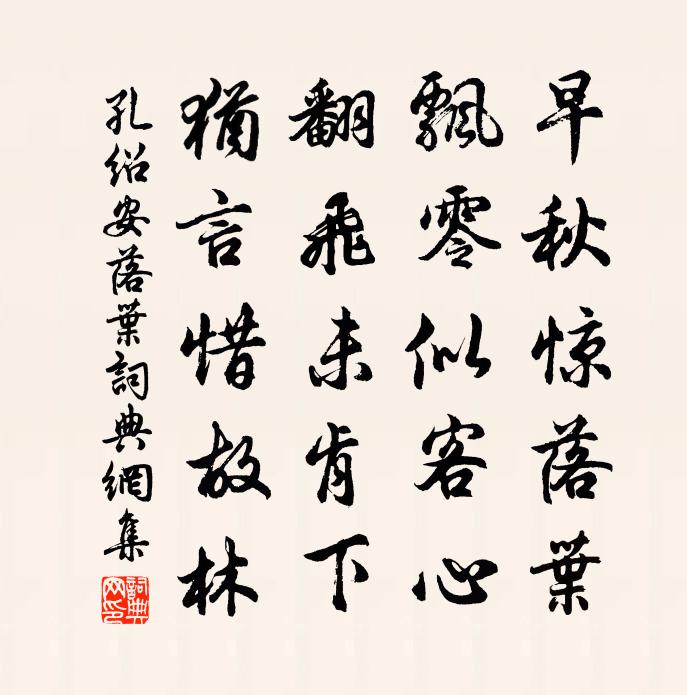 早秋惊落葉
飄零似客心
翻飛未肯下
猶言惜故林
孔紹安落葉詞典網集
詞典网印